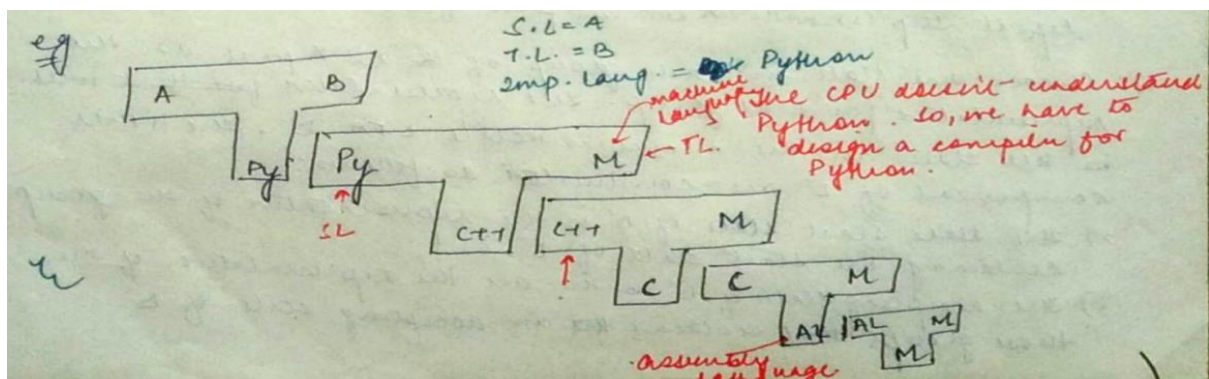 eg
S.L = A
T.L. = B
Imp. Lang. = Python
A B
Py
machine language
The CPU doesn't understand
Python. So, we have to
design a compiler for
Python.
Py M
← TL.
↑
SL
C++
C++ M
↑
C
C M
AL
AL M
M
assembly
language